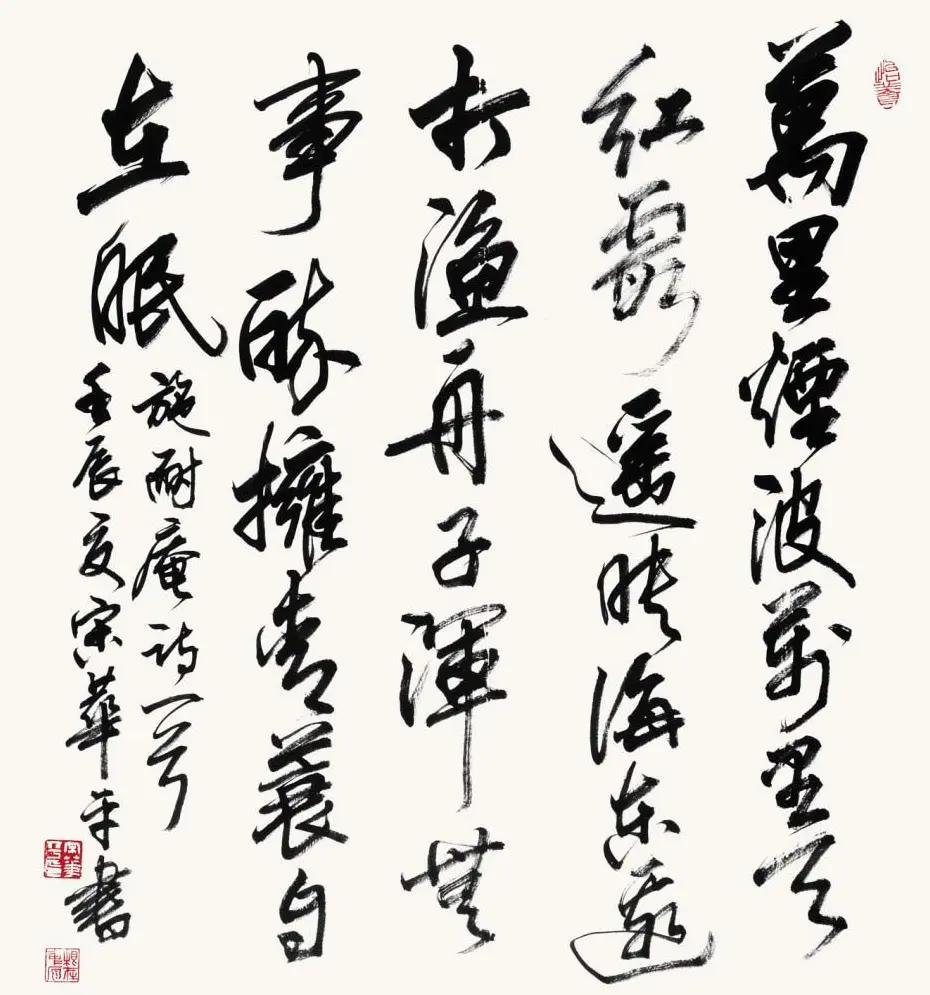 萬里煙波萬里天
紅霞遥映海東邊
打漁舟子渾無
事醉擁青蓑自
在眠
施耐庵詩一首
壬辰夏宋華平書